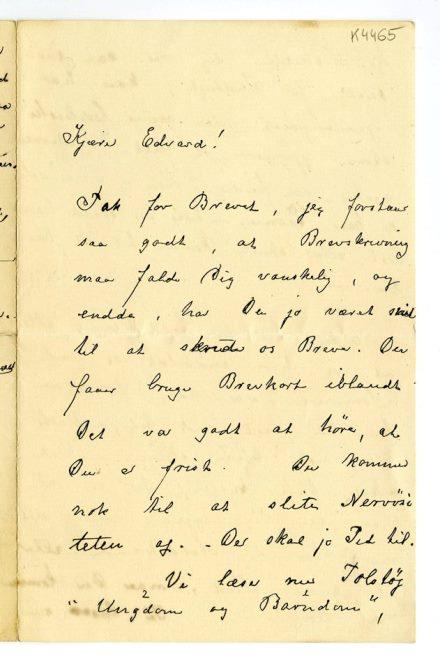 K4465
Kjære Edvard!
Tak for Brevet, jeg forstaar
saa godt, at Brevskrivning
maa falde Dig vanskelig, og
endda, har Du jo været
til at skrive os Breve. Du
faaer bruge Brevkort iblandt
Det var godt at höre, at
Du er frisk. Du kommer
nok til at slite Nervösi
teten af. - Der skal jo Tid til.
Vi læser nu Tolstöj
"Ungdom og Barndom",
2 1